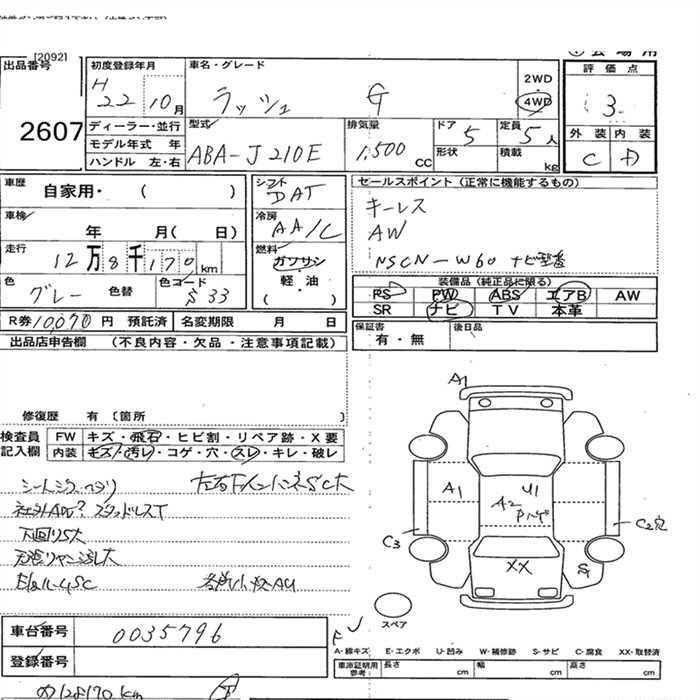 [2092]
出品番号
2607
初度登録年月
H 22 10月
車名・グレード
ラッシュ G
2WD
4WD
会場用
評価点
3
外装 内装
C D
ディーラー・並行
モデル年式 年
ハンドル 左・右
型式
ABA-J210E
排気量
1,500 CC
ドア 5
形状
定員 5人
積載 kg
車歴 自家用・( )
車検 年 月( 日)
走行 12万8千170km
色 グレー 色替
色コード S33
シフト DAT
冷房 AA/C
燃料 ガソリン・軽・油
( )
セールスポイント(正常に機能するもの)
キーレス
AW
NSCN-W60 ナビ型番
装備品(純正品に限る)
PS PW ABS エアB AW
SR ナビ TV 本革
R券10,070円 預託済
名変期限 月 日
保証書 有・無
後日品
出品店申告欄 (不良内容・欠品・注意事項記載)
修復歴 有〔箇所 〕
検査員記入欄
FW キズ・飛石・ヒビ割・リペア跡・X要
内装 キズ・汚レ・コゲ・穴・スレ・キレ・破レ
社外AW? スタッドレスT
下回りS大
A1
A1
U1
A2
C3
C2穴
XX
スペア
車台番号 0035796
登録番号
A・線キズ E・エクボ U・凹み W・補修跡 S・サビ C・腐食 XX・取替済
車庫証明用参考 長さ cm 幅 cm 高さ cm
128170km